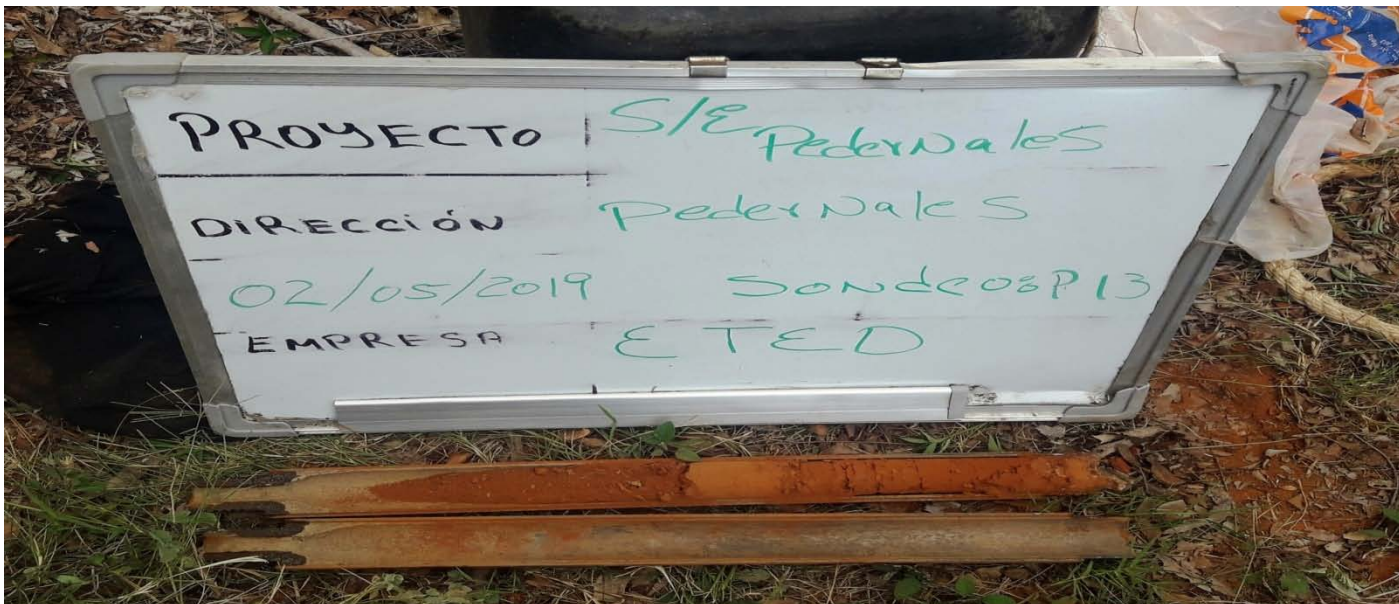 PROYECTO S/E PederNales
DIRECCIÓN PederNales
02/05/2019 SONdeos P13
EMPRESA ETED